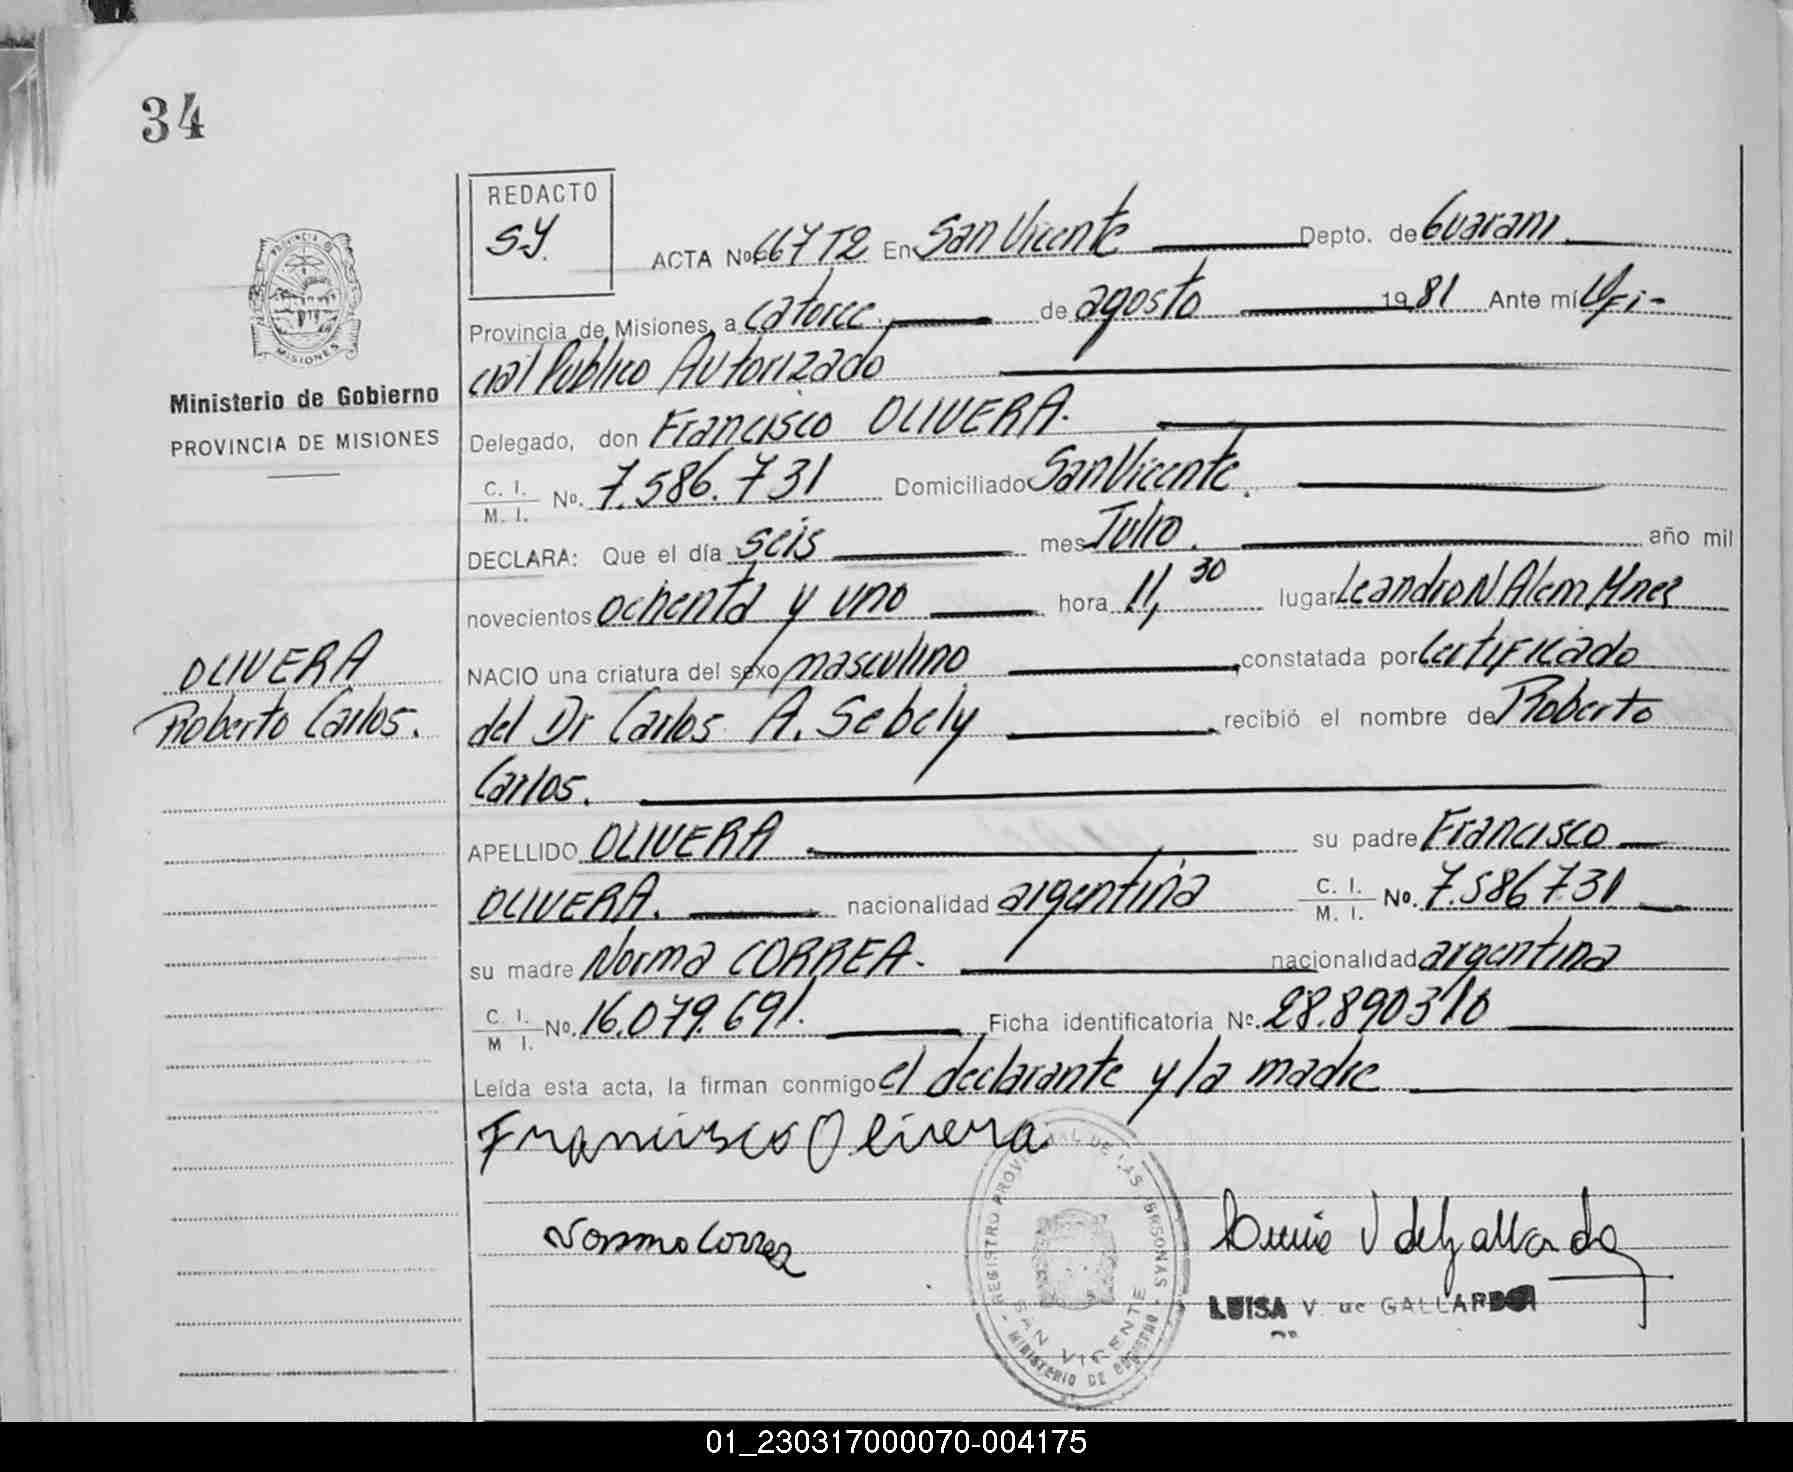 34
REDACTO
S.Y.
ACTA No. 667 T2 En San Vicente Depto. de Guarani
Provincia de Misiones, a catorce de agosto 1981 Ante mí Ofi-
cial Publico Autorizado
Delegado, don Francisco OLIVERA.
C. I. / M. I. No. 7.586.731 Domiciliado San Vicente.
DECLARA: Que el día seis mes Julio. año mil
novecientos ochenta y uno hora 11,30 lugar Leandro N Alem Mnes
NACIO una criatura del sexo masculino constatada por Certificado
del Dr Carlos A. Sebely recibió el nombre de Roberto
Carlos.
APELLIDO OLIVERA su padre Francisco
OLIVERA. nacionalidad argentina C. I. / M. I. No. 7.586731
su madre Norma CORREA. nacionalidad argentina
C. I. / M I. No. 16.079.691. Ficha identificatoria No. 28.890310
Leída esta acta, la firman conmigo el declarante y la madre
Francisco Olivera
Norma Correa
LUISA V. de GALLARDO
PROVINCIA DE
MISIONES
Ministerio de Gobierno
PROVINCIA DE MISIONES
OLIVERA
Roberto Carlos.
REGISTRO PROVINCIAL DE LAS PERSONAS
SAN VICENTE
MINISTERIO DE GOBIERNO
01_230317000070-004175